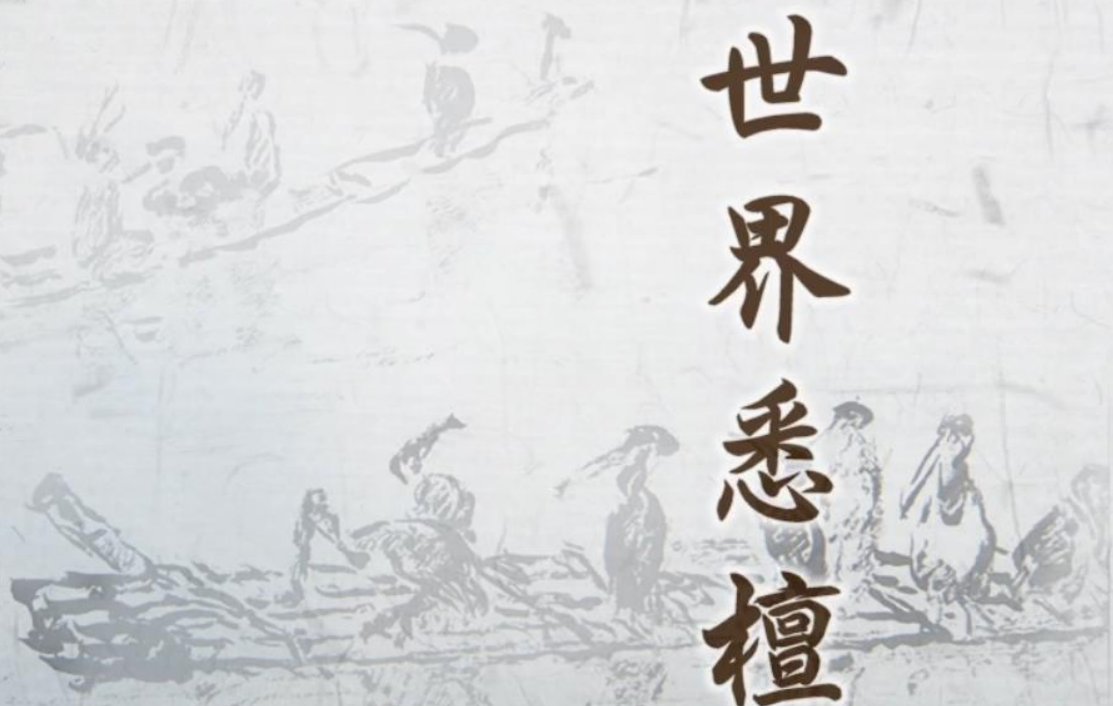 世界悉檀